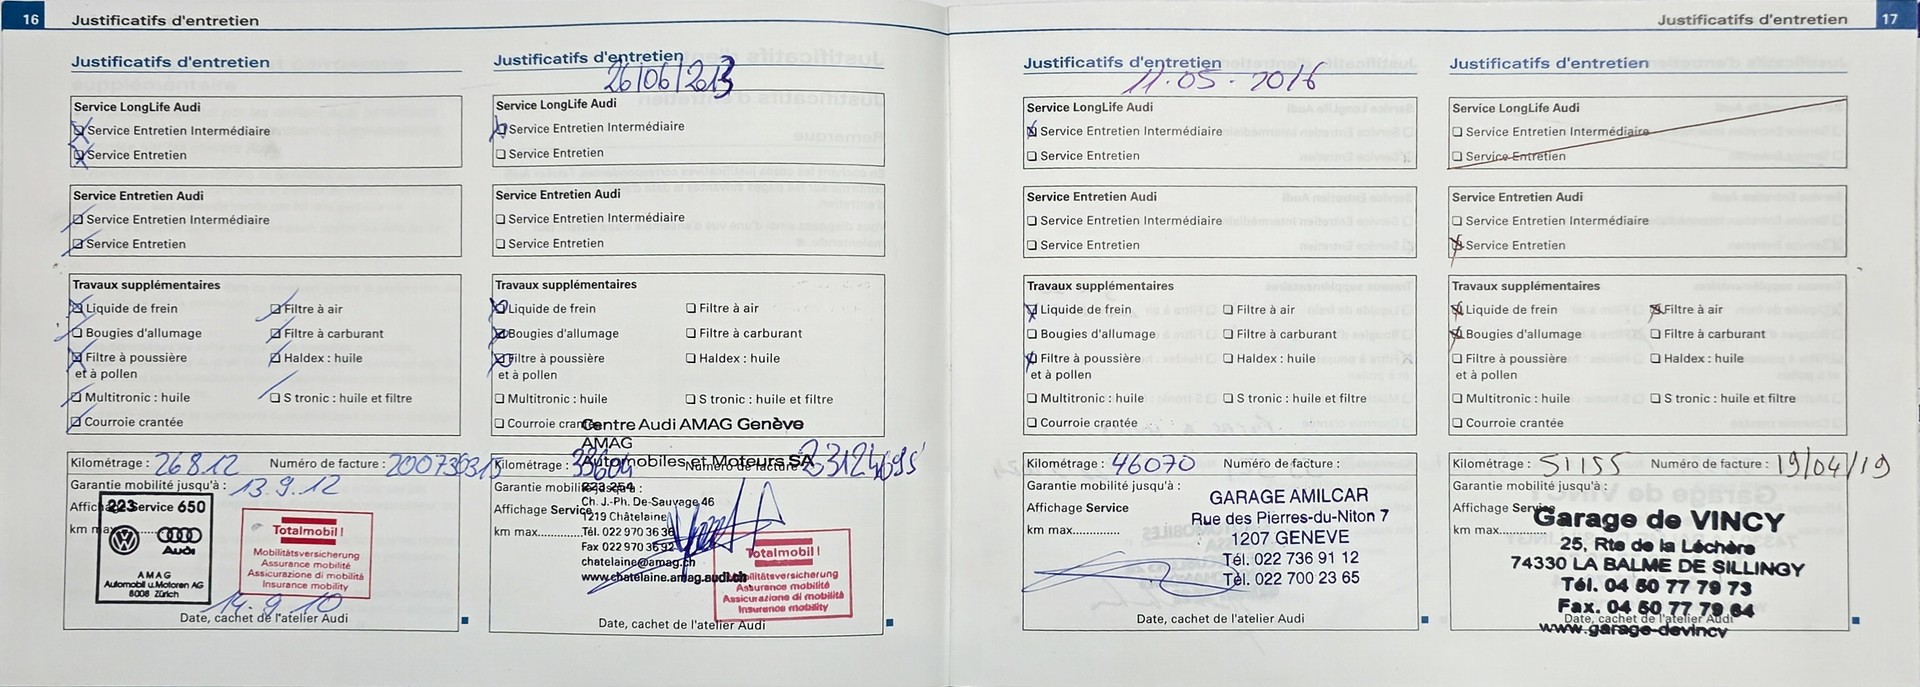 16 Justificatifs d'entretien
Justificatifs d'entretien
Service LongLife Audi
Service Entretien Intermédiaire
Service Entretien
Service Entretien Audi
Service Entretien Intermédiaire
Service Entretien
Travaux supplémentaires
Liquide de frein Filtre à air
Bougies d'allumage Filtre à carburant
Filtre à poussière Haldex : huile
et à pollen
Multitronic : huile S tronic : huile et filtre
Courroie crantée
Kilométrage : 26812 Numéro de facture :
Garantie mobilité jusqu'à : 13.9.12
Affichage Service
km max
223 650
Audi
AMAG
Automobil u. Motoren AG
8008 Zürich
Totalmobil !
Mobilitätsversicherung
Assurance mobilité
Assicurazione di mobilità
Insurance mobility
14.9.10
Date, cachet de l'atelier Audi
Justificatifs d'entretien
26/06/2013
Service LongLife Audi
Service Entretien Intermédiaire
Service Entretien
Service Entretien Audi
Service Entretien Intermédiaire
Service Entretien
Travaux supplémentaires
Liquide de frein Filtre à air
Bougies d'allumage Filtre à carburant
Filtre à poussière Haldex : huile
et à pollen
Multitronic : huile S tronic : huile et filtre
Courroie crantée
Centre Audi AMAG Genève
AMAG
Automobiles et Moteurs SA
Kilométrage : Numéro de facture
Garantie mobilité jusqu'à :
Affichage Service
km max..............
Ch. J.-Ph. De-Sauvage 46
1219 Châtelaine
Tél. 022 970 36 36
Fax 022 970 36 92
chatelaine@amag.ch
www.chatelaine.amag.audi.ch
Totalmobil !
Mobilitätsversicherung
Assurance mobilité
Assicurazione di mobilità
Insurance mobility
Date, cachet de l'atelier Audi
Justificatifs d'entretien 17
Justificatifs d'entretien
11.05.2016
Service LongLife Audi
Service Entretien Intermédiaire
Service Entretien
Service Entretien Audi
Service Entretien Intermédiaire
Service Entretien
Travaux supplémentaires
Liquide de frein Filtre à air
Bougies d'allumage Filtre à carburant
Filtre à poussière Haldex : huile
et à pollen
Multitronic : huile S tronic : huile et filtre
Courroie crantée
Kilométrage : 46070 Numéro de facture :
Garantie mobilité jusqu'à :
Affichage Service
km max..............
GARAGE AMILCAR
Rue des Pierres-du-Niton 7
1207 GENEVE
Tél. 022 736 91 12
Tél. 022 700 23 65
Date, cachet de l'atelier Audi
Justificatifs d'entretien
Service LongLife Audi
Service Entretien Intermédiaire
Service Entretien
Service Entretien Audi
Service Entretien Intermédiaire
Service Entretien
Travaux supplémentaires
Liquide de frein Filtre à air
Bougies d'allumage Filtre à carburant
Filtre à poussière Haldex : huile
et à pollen
Multitronic : huile S tronic : huile et filtre
Courroie crantée
Kilométrage : 51155 Numéro de facture : 19/04/19
Garantie mobilité jusqu'à :
Affichage Service
km max..............
Garage de VINCY
25, Rte de la Léchère
74330 LA BALME DE SILLINGY
Tél. 04 50 77 79 73
Fax. 04 50 77 79 64
Date, cachet de l'atelier Audi
www.garage-devincy